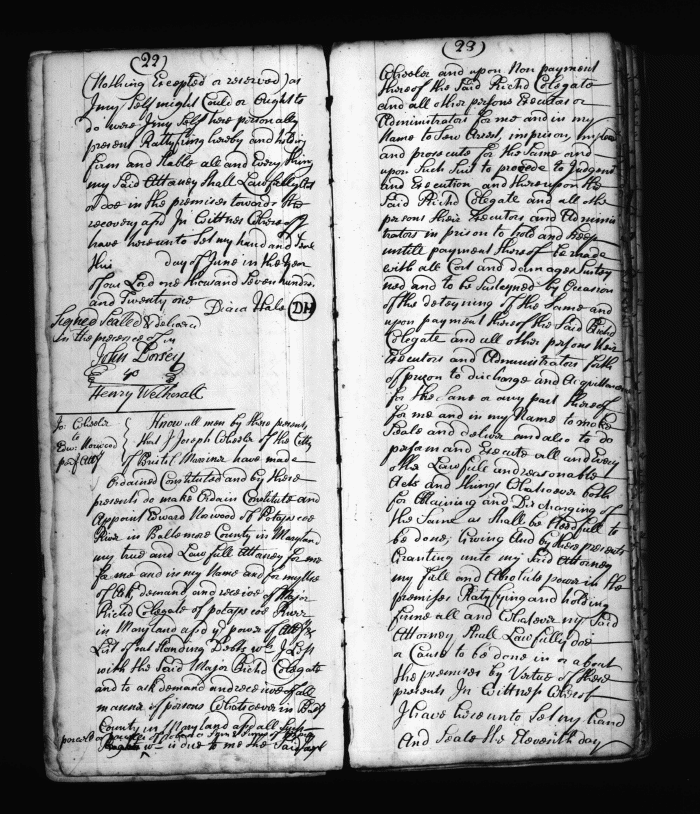 (22)
(Nothing Excepted or reserved) as
I my Self might Could or Ought to
do were I my Self here personally
present Ratifying hereby and holding
firm and Stable all and Every thing
my Said Attorney Shall Lawfully do
or doe in the premises towards the
recovery afsd In Wittnes Whereof I
have hereunto Set my hand and Seale
this day of June in the year
of our Lord one thousand Seven hundred
and Twenty one Diana Hale (DH)
Signed Sealed & delivered
In the presence of
John Dorsey
Henry Wetherall
Jo: Wheeler
to
Edw: Norwood
Know all men by these presents
that I Joseph Wheeler of the City
of Bristol Marriner have made
Ordained Constituted and by these
presents do make Ordain Constitute and
Appoint Edward Norwood of Potapscoe
River in Baltemore County in Maryland
my true and Lawfull Attorney for me
for me and in my Name and for my Use
of Ask demand and receive of Major
Richd Colegate of potapscoe River
in Maryland afsd power of
List of out Standing Debts I Left
with the Said Major Richd Colegate
and to ask demand and receive of all
manner of persons Whatsoever in
County in Maryland all Such
is due to me the Said
(23)
Wheeler and upon Non payment
thereof the Said Richd Colegate
and all other persons Executors or
Administrators for me and in my
Name to Sew Arrest, imprison,
and prosecute for the Same and
upon Such Suit to proceede to Judgent
and Execution and thereupon the
Said Richd Colegate and all othe
persons their Executors and Adminis
trators in prison to hold and keep
untill payment thereof be made
with all Cost and damages Sustey
ned and to be Susteyned by Occasion
of the deteyning of the Same and
upon payment thereof the Said Richd
Colegate and all other persons their
Executors and Administrators forth
of prison to discharge and Acquittances
for the Same or any part thereof
for me and in my Name to make
Seale and deliver and also to do
perform and Execute all and Every
the Law full and reasonable
Acts and things Whatsoever both
for Obtaining and Discharging of
the Same as Shall be Needfull to
be done, Giving And by these presents
Granting unto my Said Attorney
my full and Absolute power in the
premises Ratifying and holding
firme all and Whatever my Said
Attorney Shall Lawfully doe
or Cause to be done in or about
the premises by Virtue of these
presents In Wittness Whereof
I have hereunto Set my hand
And Seale the Eleventh day